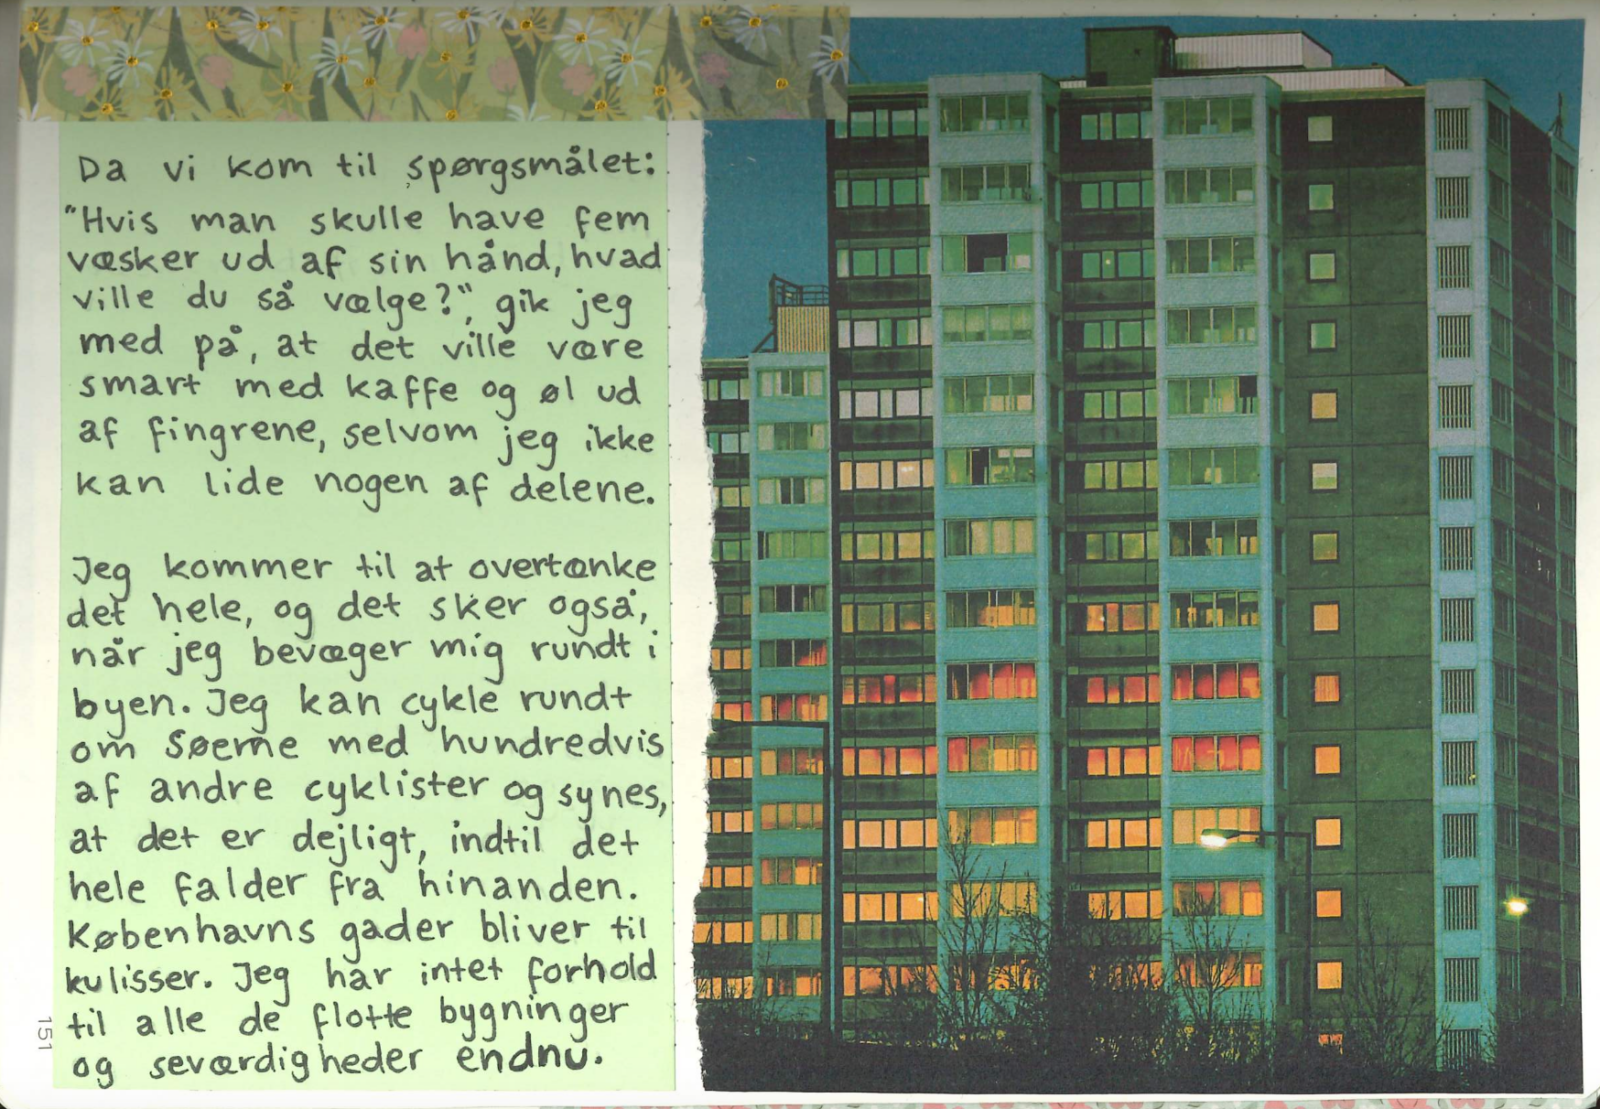 Da vi kom til spørgsmålet:
"Hvis man skulle have fem
væsker ud af sin hånd, hvad
ville du så vælge?", gik jeg
med på, at det ville være
smart med kaffe og øl ud
af fingrene, selvom jeg ikke
kan lide nogen af delene.
Jeg kommer til at overtænke
det hele, og det sker også,
når jeg bevæger mig rundt i
byen. Jeg kan cykle rundt
om Søerne med hundredvis
af andre cyklister og synes,
at det er dejligt, indtil det
hele falder fra hinanden.
Københavns gader bliver til
kulisser. Jeg har intet forhold
til alle de flotte bygninger
og seværdigheder endnu.
151